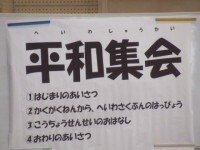 へいわしゅうかい
平和集会
①はじまりのあいさつ
②かくがくねんから、へいわさくぶんのはっぴょう
③こうちょうせんせいのおはなし
④おわりのあいさつ